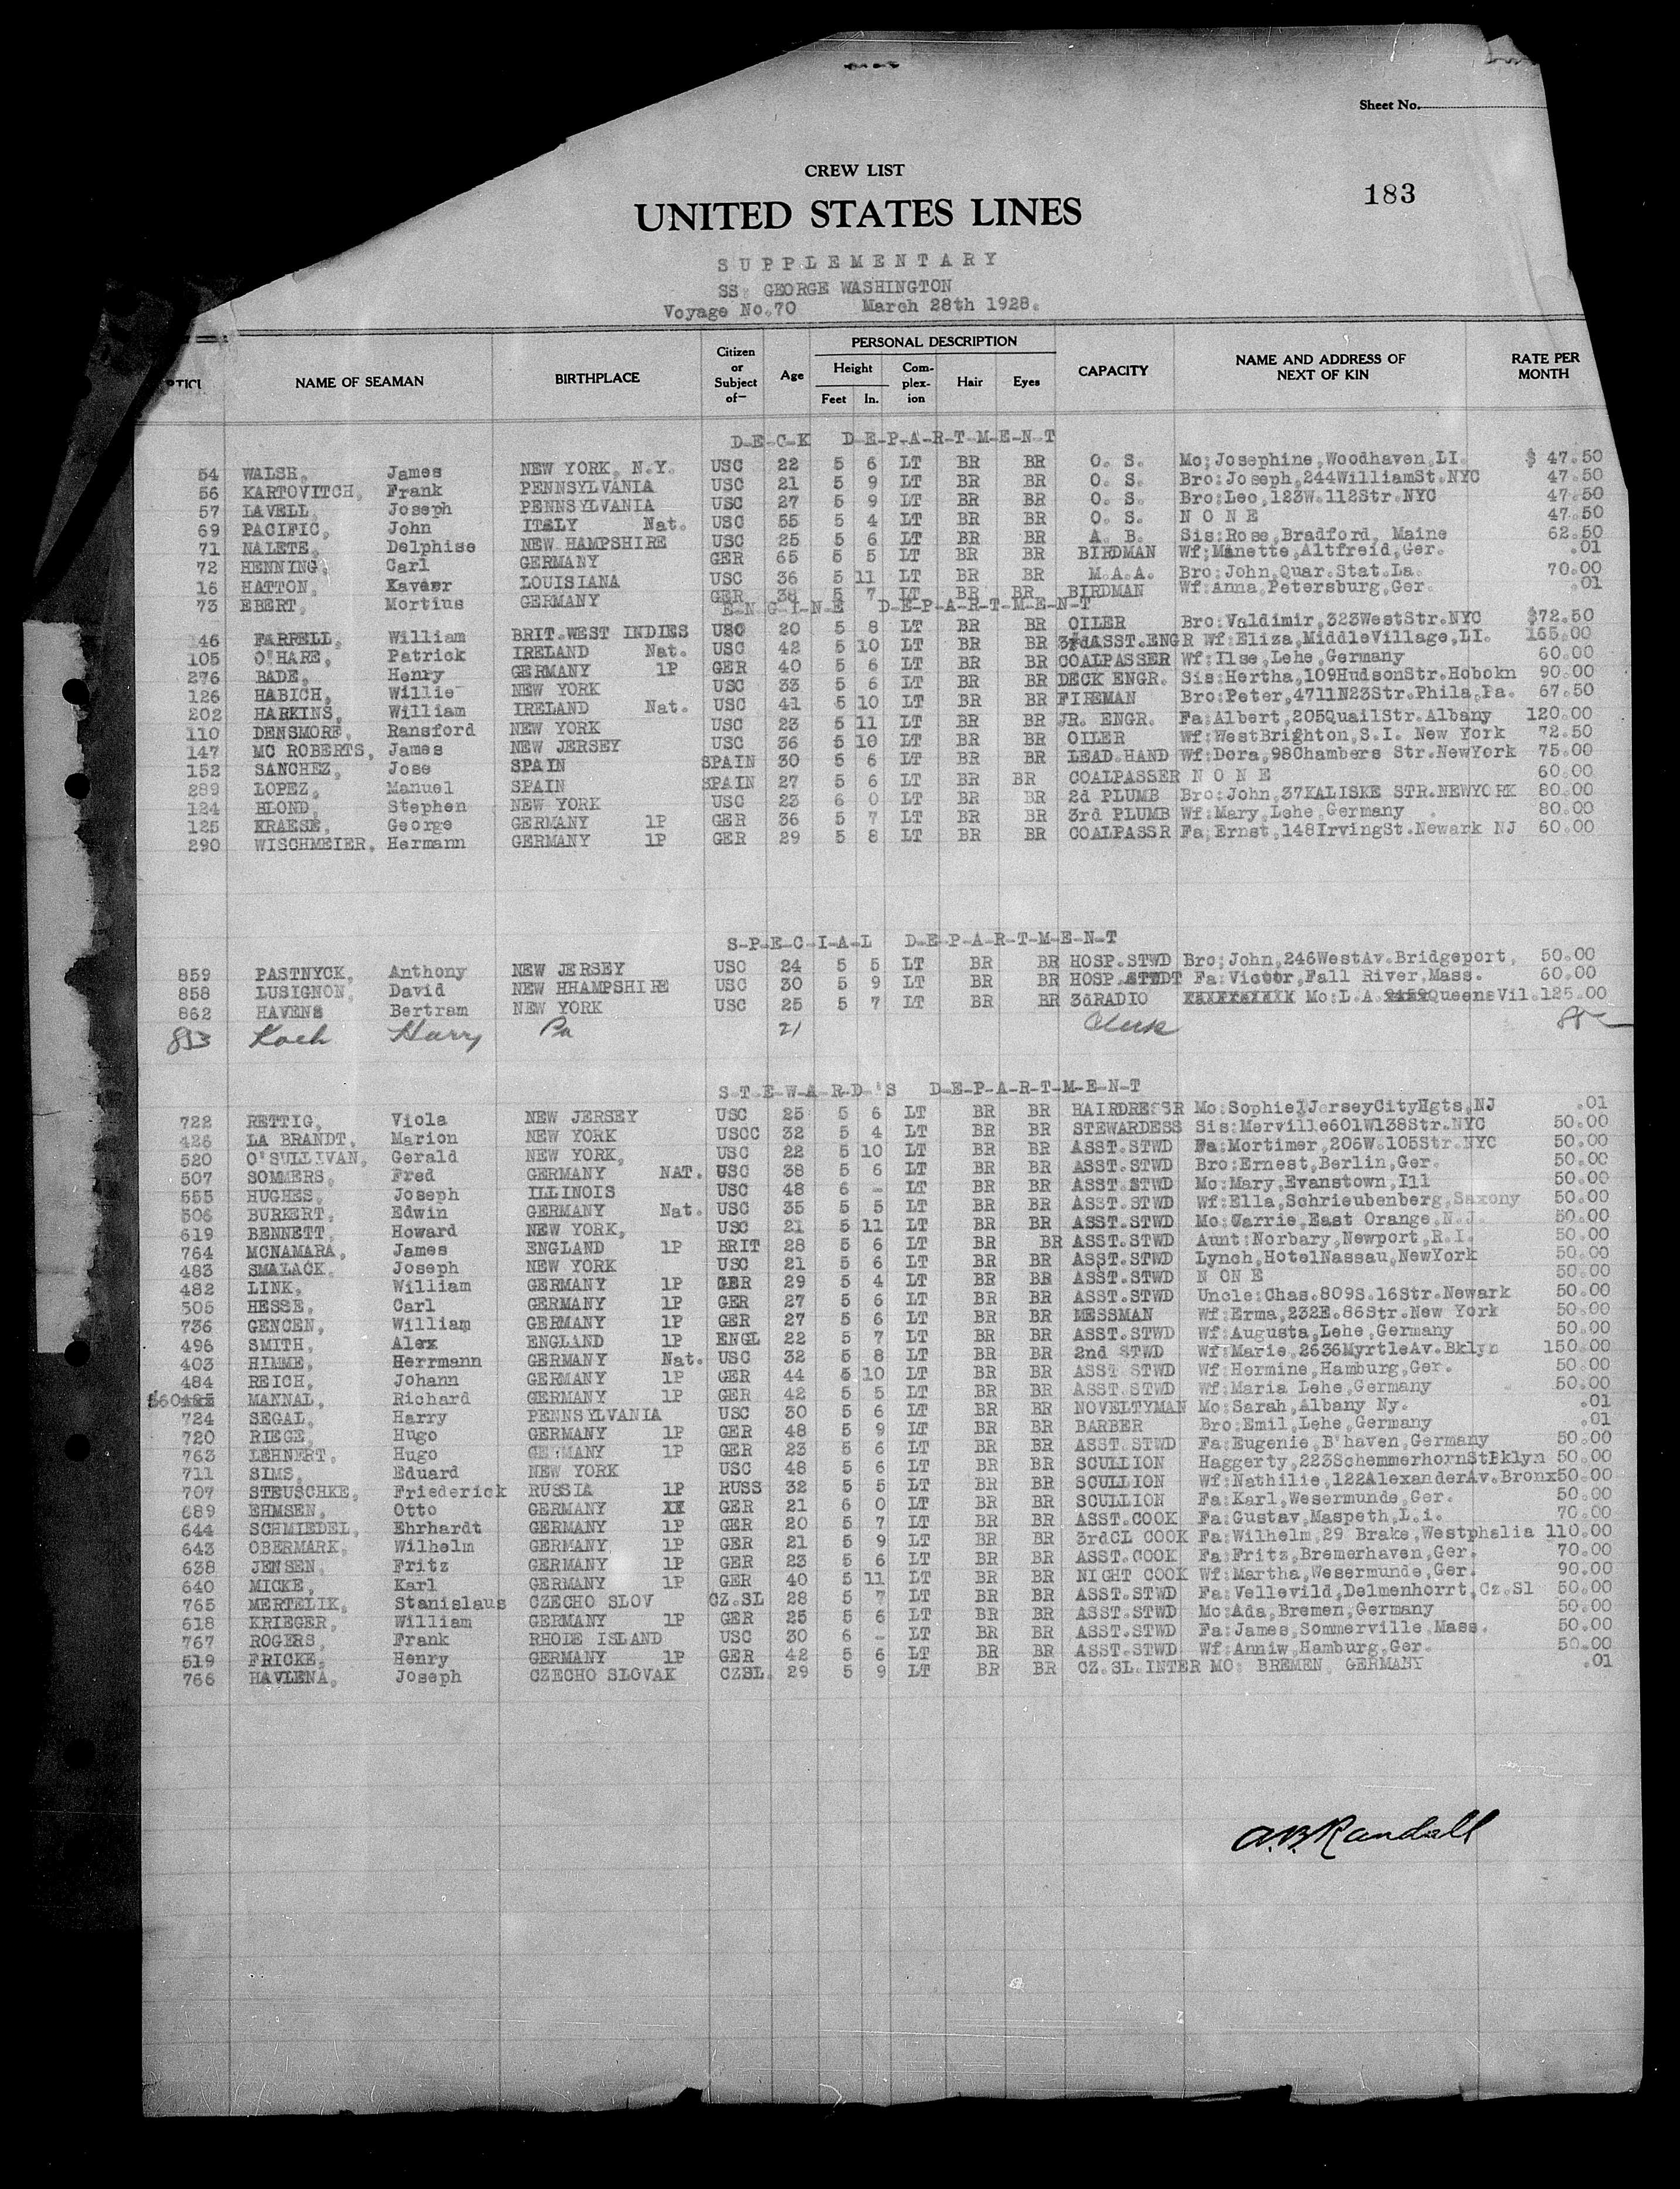 Sheet No.
CREW LIST
183
UNITED STATES LINES
SUPPLEMENTARY
SS: GEORGE WASHINGTON
Voyage No.70 March 28th 1928.
NAME OF SEAMAN BIRTHPLACE Citizen or Subject of— Age PERSONAL DESCRIPTION Height Feet In. Com-plex-ion Hair Eyes CAPACITY NAME AND ADDRESS OF NEXT OF KIN RATE PER MONTH
D-E-C-K D-E-P-A-R-T-M-E-N-T
54 WALSH, James NEW YORK, N.Y. USC 22 5 6 LT BR BR O. S. Mo:Josephine,Woodhaven,LI. $ 47.50
56 KARTOVITCH, Frank PENNSYLVANIA USC 21 5 9 LT BR BR O. S. Bro:Joseph,244WilliamSt.NYC 47.50
57 LAVELL, Joseph PENNSYLVANIA USC 27 5 9 LT BR BR O. S. Bro:Leo,123W.112Str.NYC 47.50
69 PACIFIC, John ITALY Nat. USC 55 5 4 LT BR BR O. S. N O N E 47.50
71 NALETE, Delphise NEW HAMPSHIRE USC 25 5 6 LT BR BR A. B. Sis:Rose,Bradford, Maine 62.50
72 HENNING, Carl GERMANY GER 65 5 5 LT BR BR BIRDMAN Wf:Manette,Altfreid,Ger. .01
16 HATTON, Xavier LOUISIANA USC 36 5 11 LT BR BR M.A.A. Bro:John,Quar.Stat.La. 70.00
73 EBERT, Mortius GERMANY GER 38 5 7 LT BR BR BIRDMAN Wf:Anna,Petersburg,Ger. .01
E-N-G-I-N-E D-E-P-A-R-T-M-E-N-T
146 FARRELL, William BRIT.WEST INDIES USC 20 5 8 LT BR BR OILER Bro:Valdimir,323WestStr.NYC $72.50
105 O'HARE, Patrick IRELAND Nat. USC 42 5 10 LT BR BR 3rdASST.ENGR Wf:Eliza,MiddleVillage,LI. 165.00
276 BADE, Henry GERMANY 1P GER 40 5 6 LT BR BR COALPASSER Wf:Ilse,Lehe,Germany 60.00
126 HABICH, Willie NEW YORK USC 33 5 6 LT BR BR DECK ENGR. Sis:Hertha,109HudsonStr.Hobokn 90.00
202 HARKINS, William IRELAND Nat. USC 41 5 10 LT BR BR FIREMAN Bro:Peter,4711N23Str.Phila,Pa. 67.50
110 DENSMORE, Ransford NEW YORK USC 23 5 11 LT BR BR JR. ENGR. Fa:Albert,205QuailStr.Albany 120.00
147 MC ROBERTS, James NEW JERSEY USC 36 5 10 LT BR BR OILER Wf:WestBrighton,S.I. New York 72.50
152 SANCHEZ, Jose SPAIN SPAIN 30 5 6 LT BR BR LEAD.HAND Wf:Dora,98Chambers Str.NewYork 75.00
289 LOPEZ, Manuel SPAIN SPAIN 27 5 6 LT BR BR COALPASSER N O N E 60.00
124 BLOND, Stephen NEW YORK USC 23 6 0 LT BR BR 2d PLUMB Bro:John,37KALISKE STR.NEWYORK 80.00
125 KRAESE, George GERMANY 1P GER 36 5 7 LT BR BR 3rd PLUMB Wf:Mary,Lehe,Germany 80.00
290 WISCHMEIER, Hermann GERMANY 1P GER 29 5 8 LT BR BR COALPASSR Fa:Ernst,148IrvingSt.Newark NJ 60.00
S-P-E-C-I-A-L D-E-P-A-R-T-M-E-N-T
859 PASTNYCK, Anthony NEW JERSEY USC 24 5 5 LT BR BR HOSP.STWD Bro:John,246WestAv.Bridgeport, 50.00
858 LUSIGNON, David NEW HHAMPSHIRE USC 30 5 9 LT BR BR HOSP. Fa:Victor,Fall River,Mass. 60.00
862 HAVENS Bertram NEW YORK USC 25 5 7 LT BR BR 3dRADIO Mo:L.A. QueensVil.125.00
853 Koch Harry Pa 21 Clerk
S-T-E-W-A-R-D-'S D-E-P-A-R-T-M-E-N-T
722 RETTIG, Viola NEW JERSEY USC 25 5 6 LT BR BR HAIRDRESSR Mo:SophieJerseyCityHgts,NJ .01
426 LA BRANDT, Marion NEW YORK USCC 32 5 4 LT BR BR STEWARDESS Sis:Merville601W138Str.NYC 50.00
520 O'SULLIVAN, Gerald NEW YORK, USC 22 5 10 LT BR BR ASST.STWD Fa:Mortimer,206W.105Str.NYC 50.00
507 SOMMERS, Fred GERMANY NAT. USC 38 5 6 LT BR BR ASST.STWD Bro:Ernest,Berlin,Ger. 50.00
555 HUGHES, Joseph ILLINOIS USC 48 6 - LT BR BR ASST.STWD Mo:Mary,Evanstown,Ill 50.00
506 BURKERT, Edwin GERMANY Nat. USC 35 5 5 LT BR BR ASST.STWD Wf:Ella,Schrieubenberg,Saxony 50.00
619 BENNETT, Howard NEW YORK, USC 21 5 11 LT BR BR ASST.STWD Mo:Carrie,East Orange,N.J. 50.00
764 MCNAMARA, James ENGLAND 1P BRIT 28 5 6 LT BR BR ASST.STWD Aunt:Norbary,Newport,R.I. 50.00
483 SMALACK, Joseph NEW YORK USC 21 5 6 LT BR BR ASST.STWD Lynch,HotelNassau,NewYork 50.00
482 LINK, William GERMANY 1P GER 29 5 4 LT BR BR ASST.STWD N ON E 50.00
505 HESSE, Carl GERMANY 1P GER 27 5 6 LT BR BR ASST.STWD Uncle:Chas.809S.16Str.Newark 50.00
736 GENCEN, William GERMANY 1P GER 27 5 6 LT BR BR MESSMAN Wf:Erma,232E.86Str.New York 50.00
496 SMITH, Alex ENGLAND 1P ENGL 22 5 7 LT BR BR ASST.STWD Wf:Augusta,Lehe,Germany 50.00
403 HIMME, Herrmann GERMANY Nat. USC 32 5 8 LT BR BR 2nd STWD Wf:Marie,2636MyrtleAv.Bklyn 150.00
484 REICH, Johann GERMANY 1P GER 44 5 10 LT BR BR ASST STWD Wf:Hermine,Hamburg,Ger. 50.00
MANNAL, Richard GERMANY 1P GER 42 5 5 LT BR BR ASST.STWD Wf:Maria Lehe,Germany 50.00
724 SEGAL, Harry PENNSYLVANIA USC 30 5 6 LT BR BR NOVELTYMAN Mo:Sarah,Albany Ny. .01
720 RIEGE, Hugo GERMANY 1P GER 48 5 9 LT BR BR BARBER Bro:Emil,Lehe,Germany .01
763 LEHNERT, Hugo GERMANY 1P GER 23 5 6 LT BR BR ASST.STWD Fa:Eugenie,B'haven,Germany 50.00
711 SIMS, Eduard NEW YORK USC 48 5 6 LT BR BR SCULLION Haggerty,223SchemmerhornStBklyn 50.00
707 STEUSCHKE, Friederick RUSSIA 1P RUSS 32 5 5 LT BR BR SCULLION Wf:Nathilie,122AlexanderAv.Bronx50.00
689 EHMSEN, Otto GERMANY XX GER 21 6 0 LT BR BR SCULLION Fa:Karl,Wesermunde,Ger. 50.00
644 SCHMIEDEL, Ehrhardt GERMANY 1P GER 20 5 7 LT BR BR ASST.COOK Fa:Gustav,Maspeth,L.i. 70.00
643 OBERMARK, Wilhelm GERMANY 1P GER 21 5 9 LT BR BR 3rdCL COOK Fa:Wilhelm,29 Brake,Westphalia 110.00
638 JENSEN, Fritz GERMANY 1P GER 23 5 6 LT BR BR ASST.COOK Fa:Fritz,Bremerhaven,Ger. 70.00
640 MICKE, Karl GERMANY 1P GER 40 5 11 LT BR BR NIGHT COOK Wf:Martha,Wesermunde,Ger. 90.00
765 MERTELIK, Stanislaus CZECHO SLOV CZ.SL 28 5 7 LT BR BR ASST.STWD Fa:Vellevild,Delmenhorrt,Cz.Sl 50.00
618 KRIEGER, William GERMANY 1P GER 25 5 6 LT BR BR ASST.STWD Mo:Ada,Bremen,Germany 50.00
767 ROGERS, Frank RHODE ISLAND USC 30 6 - LT BR BR ASST.STWD Fa:James,Sommerville,Mass. 50.00
519 FRICKE, Henry GERMANY 1P GER 42 5 6 LT BR BR ASST.STWD Wf:Anniw,Hamburg,Ger. 50.00
766 HAVLENA, Joseph CZECHO SLOVAK CZSL. 29 5 9 LT BR BR CZ.SL.INTER MO: BREMEN, GERMANY .01
A.B.Randall